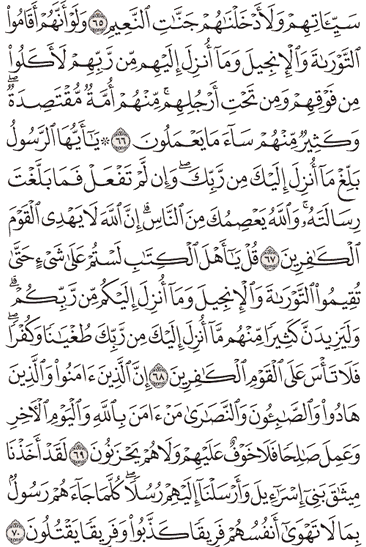 سَيِّـَٔاتِهِمْ وَلَأَدْخَلْنَٰهُمْ جَنَّٰتِ ٱلنَّعِيمِ ٦٥ وَلَوْ أَنَّهُمْ أَقَامُوا۟
ٱلتَّوْرَىٰةَ وَٱلْإِنجِيلَ وَمَآ أُنزِلَ إِلَيْهِم مِّن رَّبِّهِمْ لَأَكَلُوا۟
مِن فَوْقِهِمْ وَمِن تَحْتِ أَرْجُلِهِم ۚ مِّنْهُمْ أُمَّةٌ مُّقْتَصِدَةٌ ۖ
وَكَثِيرٌ مِّنْهُمْ سَآءَ مَا يَعْمَلُونَ ٦٦ ۞ يَٰٓأَيُّهَا ٱلرَّسُولُ
بَلِّغْ مَآ أُنزِلَ إِلَيْكَ مِن رَّبِّكَ ۖ وَإِن لَّمْ تَفْعَلْ فَمَا بَلَّغْتَ
رِسَالَتَهُۥ ۚ وَٱللَّهُ يَعْصِمُكَ مِنَ ٱلنَّاسِ ۗ إِنَّ ٱللَّهَ لَا يَهْدِى ٱلْقَوْمَ
ٱلْكَٰفِرِينَ ٦٧ قُلْ يَٰٓأَهْلَ ٱلْكِتَٰبِ لَسْتُمْ عَلَىٰ شَىْءٍ حَتَّىٰ
تُقِيمُوا۟ ٱلتَّوْرَىٰةَ وَٱلْإِنجِيلَ وَمَآ أُنزِلَ إِلَيْكُم مِّن رَّبِّكُمْ ۗ
وَلَيَزِيدَنَّ كَثِيرًا مِّنْهُم مَّآ أُنزِلَ إِلَيْكَ مِن رَّبِّكَ طُغْيَٰنًا وَكُفْرًا ۖ
فَلَا تَأْسَ عَلَى ٱلْقَوْمِ ٱلْكَٰفِرِينَ ٦٨ إِنَّ ٱلَّذِينَ ءَامَنُوا۟ وَٱلَّذِينَ
هَادُوا۟ وَٱلصَّٰبِـُٔونَ وَٱلنَّصَٰرَىٰ مَنْ ءَامَنَ بِٱللَّهِ وَٱلْيَوْمِ ٱلْءَاخِرِ
وَعَمِلَ صَٰلِحًا فَلَا خَوْفٌ عَلَيْهِمْ وَلَا هُمْ يَحْزَنُونَ ٦٩ لَقَدْ أَخَذْنَا
مِيثَٰقَ بَنِىٓ إِسْرَٰٓءِيلَ وَأَرْسَلْنَآ إِلَيْهِمْ رُسُلًا ۖ كُلَّمَا جَآءَهُمْ رَسُولٌۢ
بِمَا لَا تَهْوَىٰٓ أَنفُسُهُمْ فَرِيقًا كَذَّبُوا۟ وَفَرِيقًا يَقْتُلُونَ ٧٠